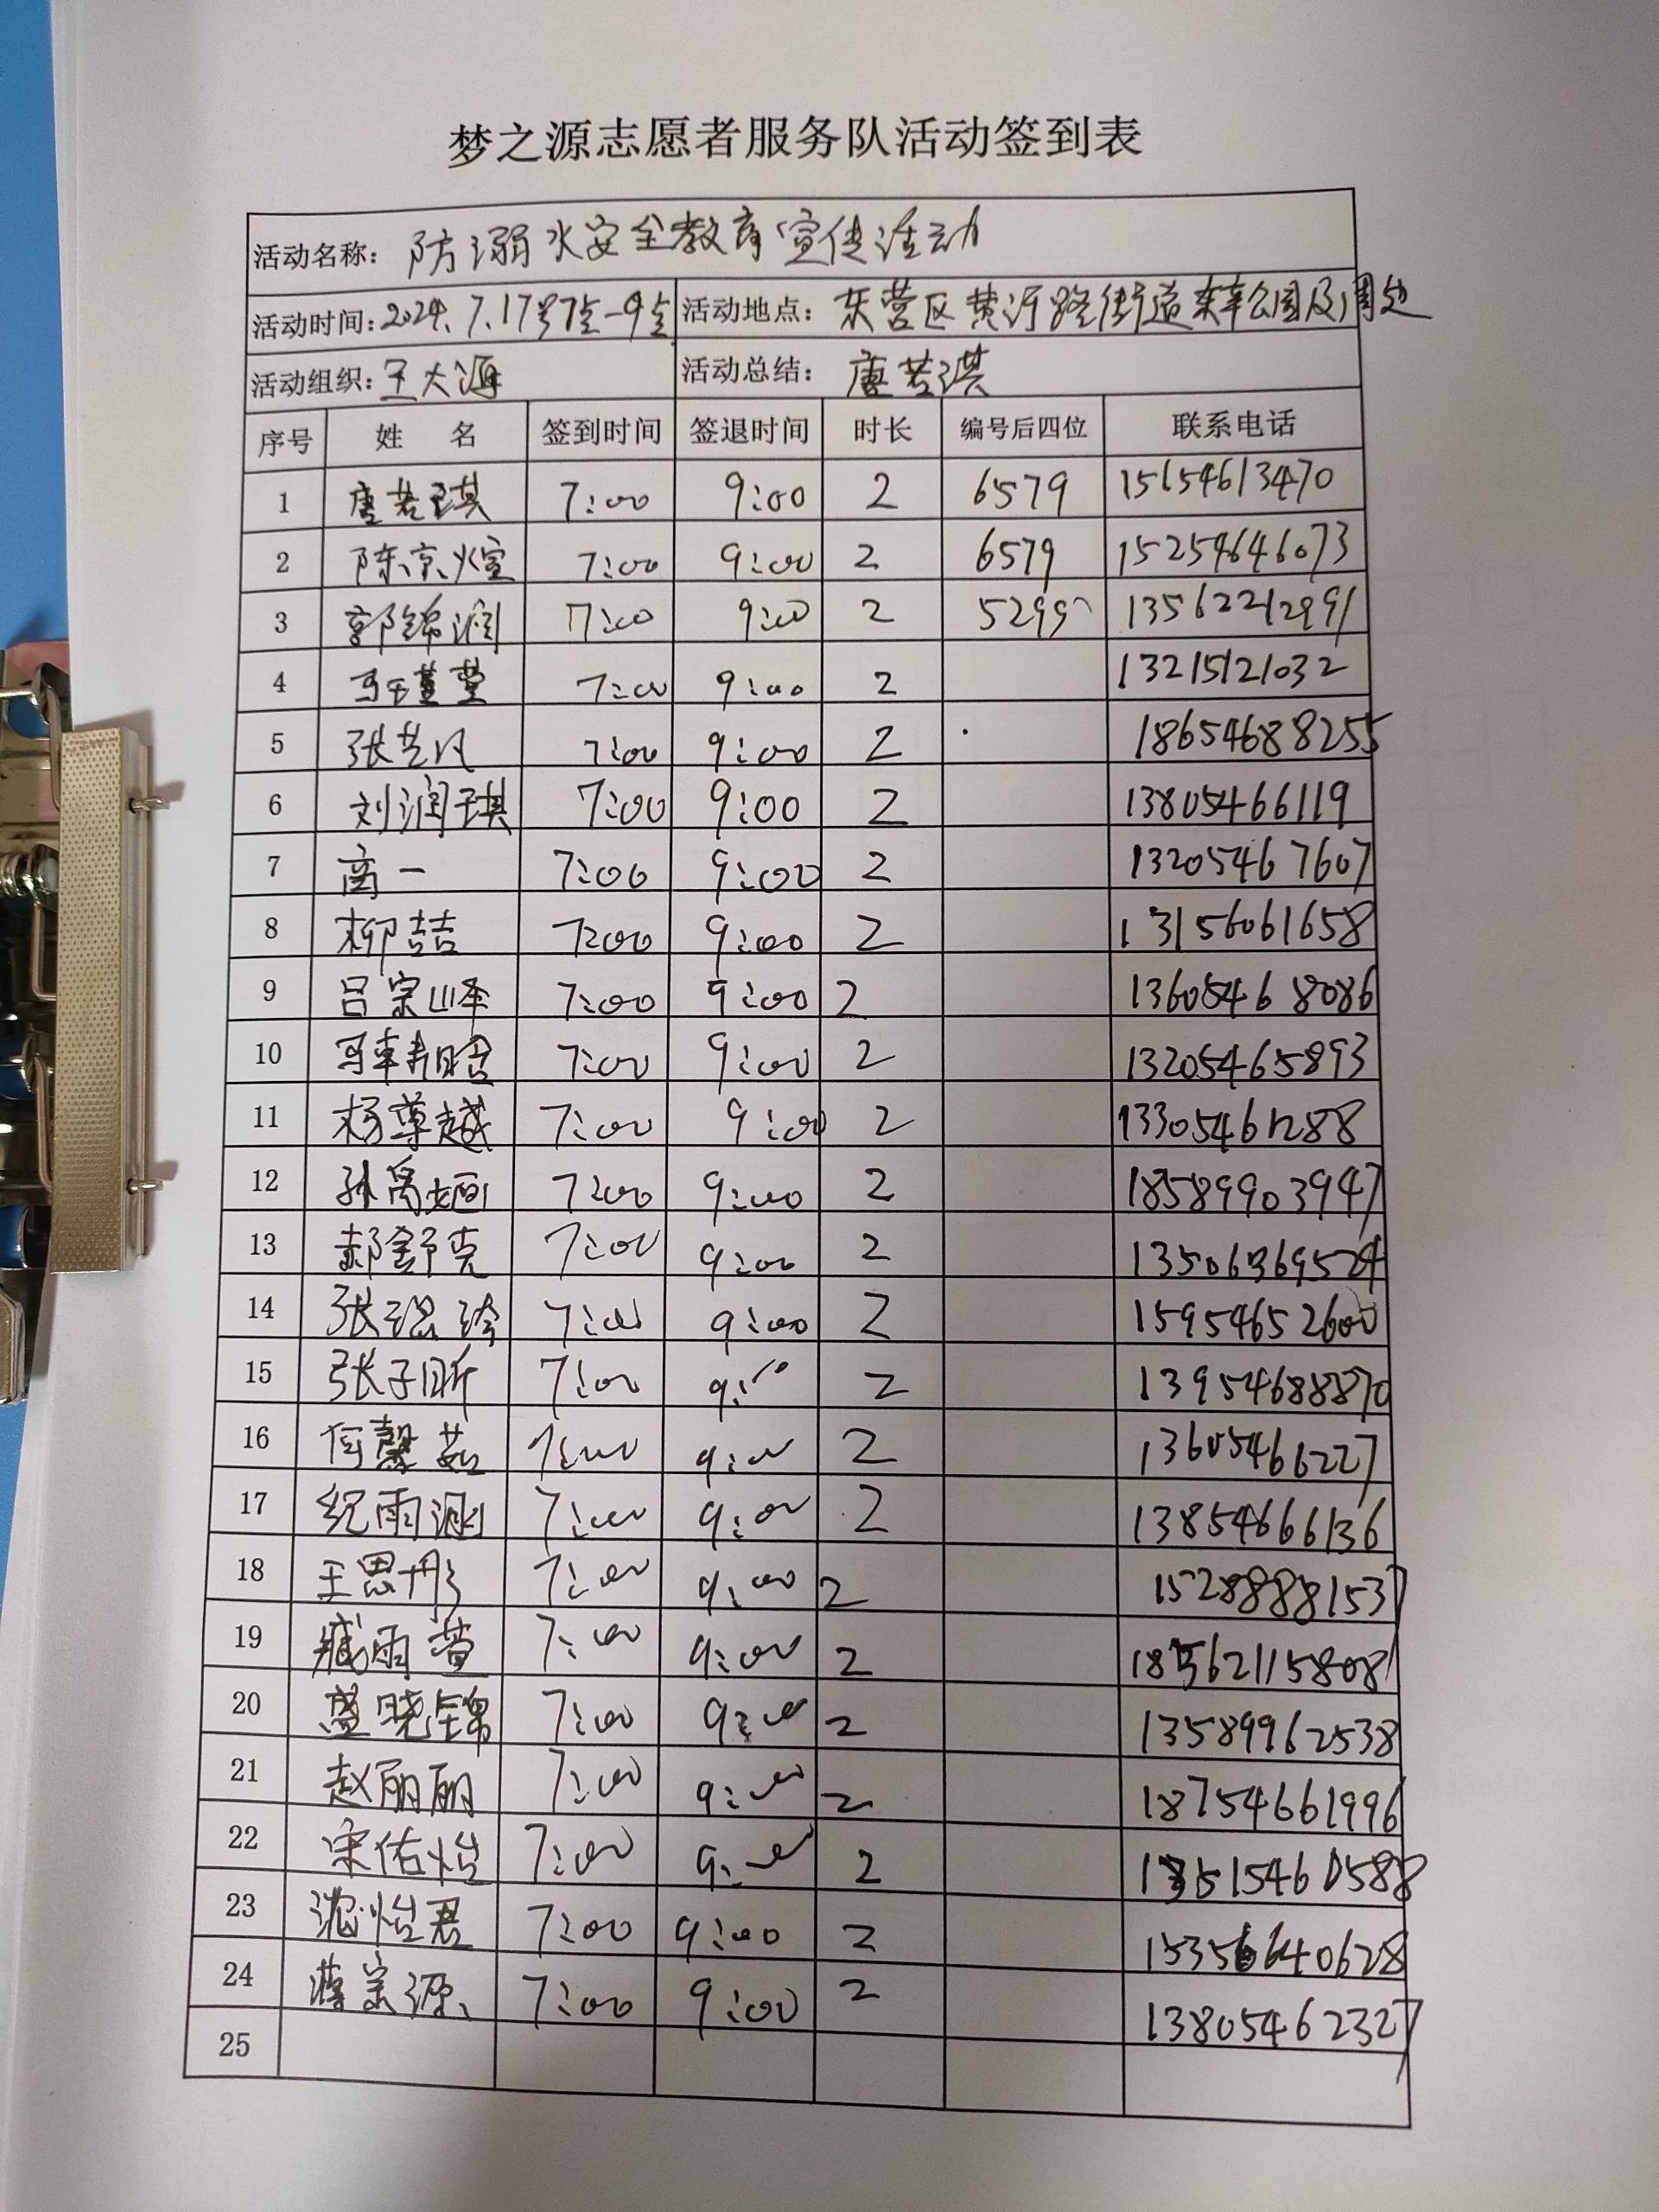 梦之源志愿者服务队活动签到表
活动名称: 防溺水安全教育宣传活动
活动时间: 2024.7.17号7点-9点 活动地点: 东营区黄河路街道东辛公园及周边
活动组织: 王大源 活动总结: 唐若淇
序号 姓 名 签到时间 签退时间 时长 编号后四位 联系电话
1 唐若琪 7:00 9:00 2 6579 15154613470
2 陈京煊 7:00 9:00 2 6579 15254646073
3 郭锦润 7:00 9:00 2 5299 13562212991
4 7:00 9:00 2 13215121032
5 张艺凡 7:00 9:00 2 18654688255
6 刘润琪 7:00 9:00 2 13805466119
7 高一 7:00 9:00 2 13205467607
8 柳喆 7:00 9:00 2 13156061658
9 吕宗峄 7:00 9:00 2 13605468086
10 7:00 9:00 2 13205465893
11 杨尊越 7:00 9:00 2 13305461288
12 7:00 9:00 2 18589903947
13 郝舒克 7:00 9:00 2 13506369524
14 7:00 9:00 2 15954652600
15 张子昕 7:00 2 13954688870
16 何馨茹 7:00 9:00 2 13605466227
17 纪雨 7:00 9:00 2 13854666136
18 王思彤 7:00 9:00 2 15288881537
19 臧雨萱 7:00 9:00 2
20 盛晓锦 7:00 9:00 2 13589962538
21 赵丽丽 7:00 9:00 2 18754661996
22 宋佑怡 7:00 9:00 2
23 沈怡君 7:00 9:00 2
24 蒋宗源 7:00 9:00 2 13805462327
25